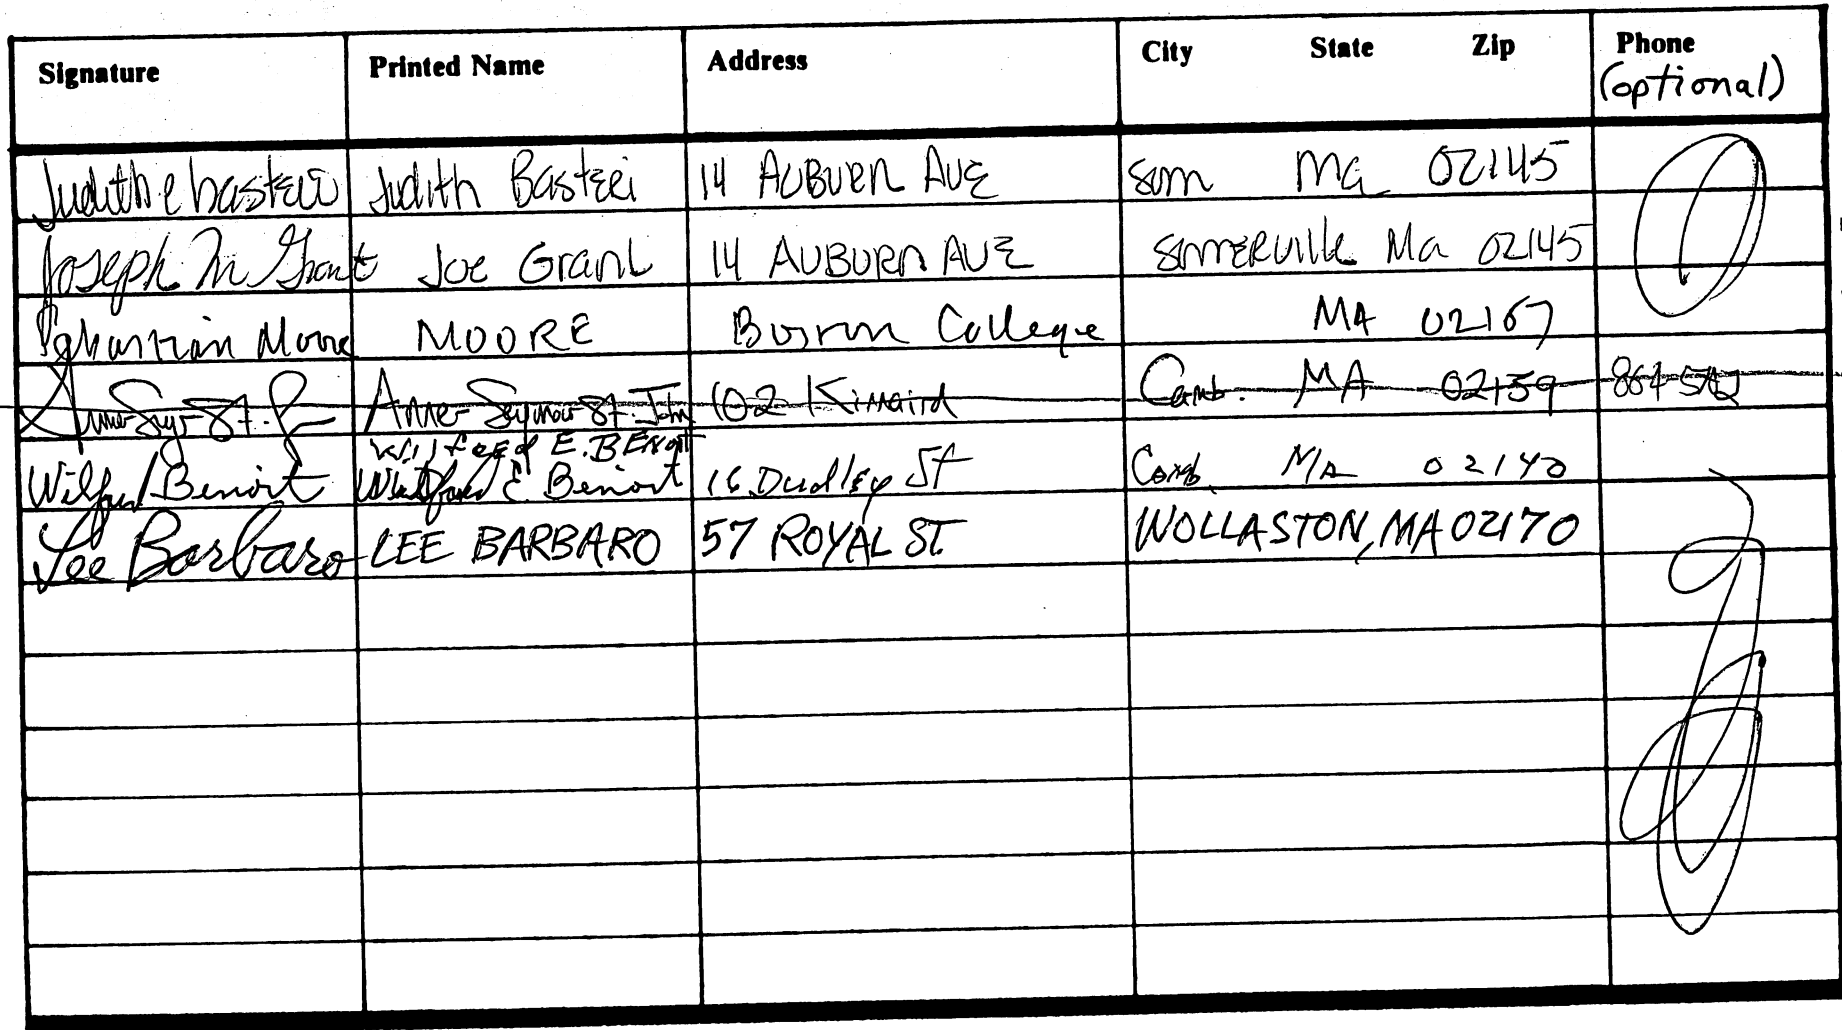 Signature Printed Name Address City State Zip Phone
(optional)
Judith e basteri Judith Basteri 14 AUBURN AVE Som Ma 02145
Joseph M Grant Joe Grant 14 AUBURN AVE SomERville Ma 02145
Sebastian Moore MOORE Boston College MA 02167
Anne Seymour St. John 102 Kinnaird Camb. MA 02139 864
Wilfred E. BENOIT
Wilfred Benoit Wilfred E. Benoit 16 Dudley St Camb. MA 02140
Lee Barbaro LEE BARBARO 57 ROYAL ST. WOLLASTON, MA 02170